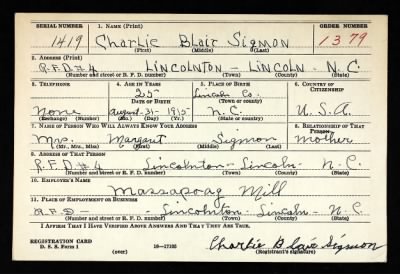 SERIAL NUMBER 1. NAME (Print) ORDER NUMBER
1419 Charlie Blair Sigmon 1379
(First) (Middle) (Last)
2. ADDRESS (Print)
R.F.D #4 Lincolnton - Lincoln - N.C.
(Number and street or R. F. D. number) (Town) (County) (State)
3. TELEPHONE 4. AGE IN YEARS 5. PLACE OF BIRTH 6. COUNTRY OF CITIZENSHIP
25 Lincoln Co.
DATE OF BIRTH (Town or county)
None August - 31 - 1915 N.C. U.S.A.
(Exchange) (No.) (Mo.) (Day) (Yr.) (State or country)
7. NAME OF PERSON WHO WILL ALWAYS KNOW YOUR ADDRESS 8. RELATIONSHIP OF THAT PERSON
Mrs. Sigmon Mother
(Mr., Mrs., Miss) (First) (Middle) (Last)
9. ADDRESS OF THAT PERSON
R.F.D #4 Lincolnton - Lincoln - N.C.
(Number and street or R. F. D. number) (Town) (County) (State)
10. EMPLOYER'S NAME
Massapoag Mill
11. PLACE OF EMPLOYMENT OR BUSINESS
R.F.D - Lincolnton - Lincoln - N.C
(Number and street or R. F. D. number) (Town) (County) (State)
I AFFIRM THAT I HAVE VERIFIED ABOVE ANSWERS AND THAT THEY ARE TRUE.
REGISTRATION CARD
D. S. S. Form 1 (over) 16-17105 Charlie Blair Sigmon
(Registrant's signature)